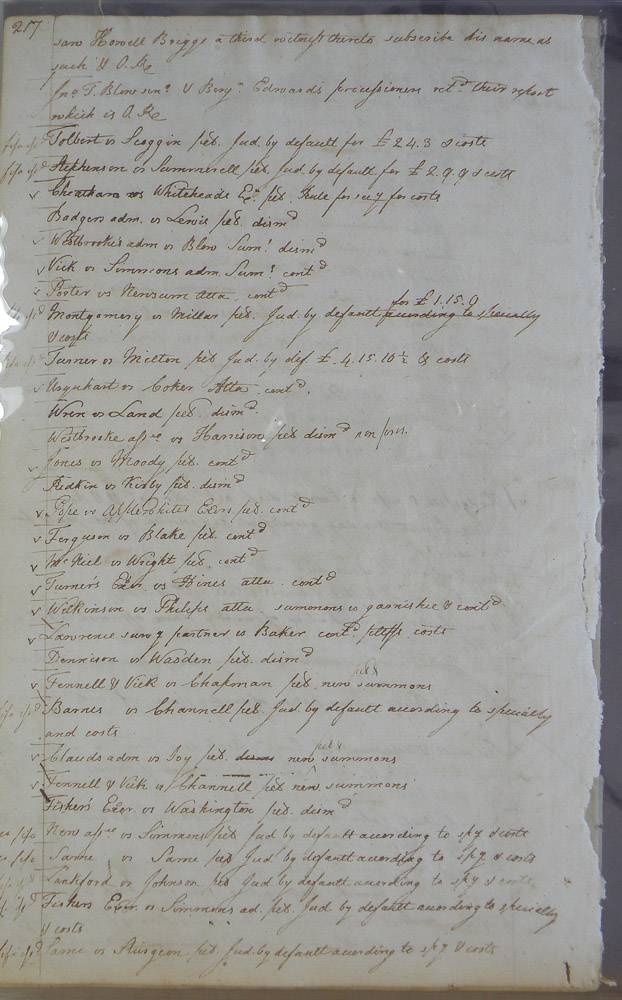 217
saw Howell Briggs a third witness thereto subscribe his name as
such & O.R.
Jno. T. Blow senr. & Benjn. Edwards processioners retd. their report
which is O.R.
fifa ispd Tolbert vs Scoggin pet. Jud. by default for £ 24.3 & costs
fifa ispd Stephenson vs Summerell pet. Jud. by default for £ 2.9.9 & costs
v Cheatham vs Whiteheads Exr. pet. Rule for secy for costs
Badgers adm. vs Lewis pet. dismd
v Westbrooke's adm vs Blow Sums. dismd
v Vick vs Simmons adm. Sums. contd
v Porter vs Newsum atta. contd
for £ 1.15.9
Montgomery vs Millar pet. Jud. by default according to specially
& costs
Turner vs Melton pet Jud. by def £. 4.15.10½ & costs
v Urquhart vs Coker Atta. contd.
Wren vs Land pet. dismd.
Westbrooke assee vs Harrison pet dismd non pros.
v Jones vs Moody pet. contd
Redkin vs Kirby pet. dismd
v Pope vs Applewhites Exrs pet. contd
v Ferguson vs Blake pet contd
v McNiel vs Wright pet. contd
v Turner's Exr. vs Hines atta. contd
v Wilkinson vs Philips atta. summons vs garnishee & contd.
v Lawrence survg partner vs Baker contd pltffs. costs
Dennison vs Wasden pet. dismd
pet &
v Fennell & Vick vs Chapman pet. new summons
fifa ispd Barnes vs Channell pet. Jud. by default according to specially
and costs
pet &
v Clauds adm vs Ivy pet. disms new summons
v Fennell & Vick vs Channell pet new summons
Fisher's Exor. vs Washington pet. dismd
New assee vs Simmons pet Jud by default according to spy & costs
Same vs Same pet Jud. by default according to spy & costs
Lankford vs Johnson pet Jud by default according to spy & costs
Fishers Exor. vs Simmons ad. pet. Jud by default according to specially
& costs
fifa ispd Same vs Sturgeon pet. Jud. by default according to spy & costs